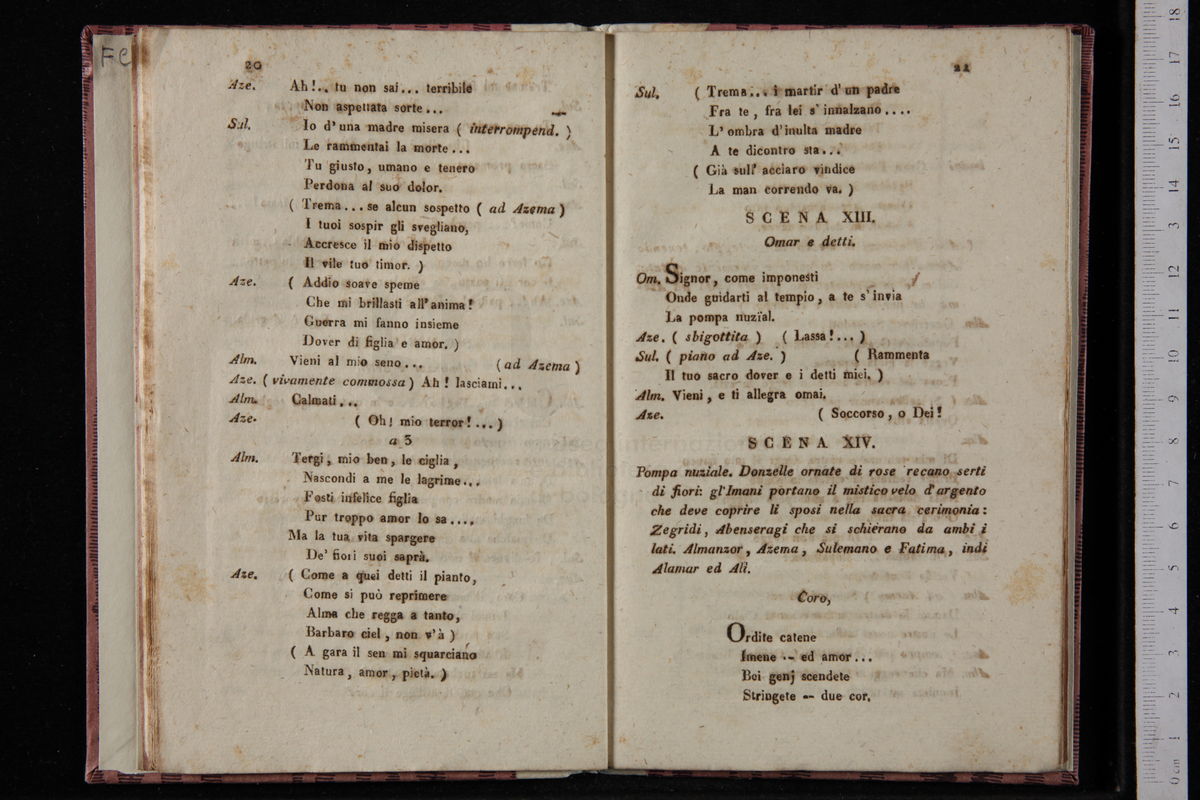 FC
20
Aze. Ah!.. tu non sai... terribile
Non aspettata sorte...
Sul. Io d'una madre misera ( interrompend. )
Le rammentai la morte...
Tu giusto, umano e tenero
Perdona al suo dolor.
( Trema...se alcun sospetto ( ad Azema )
I tuoi sospir gli svegliano,
Accresce il mio dispetto
Il vile tuo timor. )
Aze. ( Addio soave speme
Che mi brillasti all'anima!
Guerra mi fanno insieme
Dover di figlia e amor. )
Alm. Vieni al mio seno... (ad Azema )
Aze. ( vivamente commossa ) Ah ! lasciami...
Alm. Calmati...
Aze. ( Oh! mio terror!...)
a 3
Alm. Tergi, mio ben, le ciglia,
Nascondi a me le lagrime...
Fosti infelice figlia
Pur troppo amor lo sa....
Ma la tua vita spargere
De' fiori suoi saprà.
Aze. ( Come a quei detti il pianto,
Come si può reprimere
Alma che regga a tanto,
Barbaro ciel, non v'à )
( A gara il sen mi squarciano
Natura, amor, pietà. )
21
Sul. ( Trema... i martir d'un padre
Fra te, fra lei s'innalzano....
L'ombra d'inulta madre
A te dicontro sta...
( Già sull' acciaro vindice
La man correndo va. )
SCENA XIII.
Omar e detti.
Om. Signor, come imponesti
Onde guidarti al tempio, a te s'invia
La pompa nuzïal.
Aze. ( sbigottita ) ( Lassa!... )
Sul. ( piano ad Aze. ) ( Rammenta
Il tuo sacro dover e i detti miei. )
Alm. Vieni, e ti allegra omai.
Aze. ( Soccorso, o Dei!
SCENA XIV.
Pompa nuziale. Donzelle ornate di rose recano serti
di fiori: gl'Imani portano il mistico velo d'argento
che deve coprire li sposi nella sacra cerimonia:
Zegridi, Abenseragi che si schierano da ambi i
lati. Almanzor, Azema, Sulemano e Fatima, indi
Alamar ed Alì.
Coro,
Ordite catene
Imene -- ed amor...
Bei genj scendete
Stringete -- due cor.
0 cm 1 2 3 4 5 6 7 8 9 10 11 12 13 14 15 16 17 18